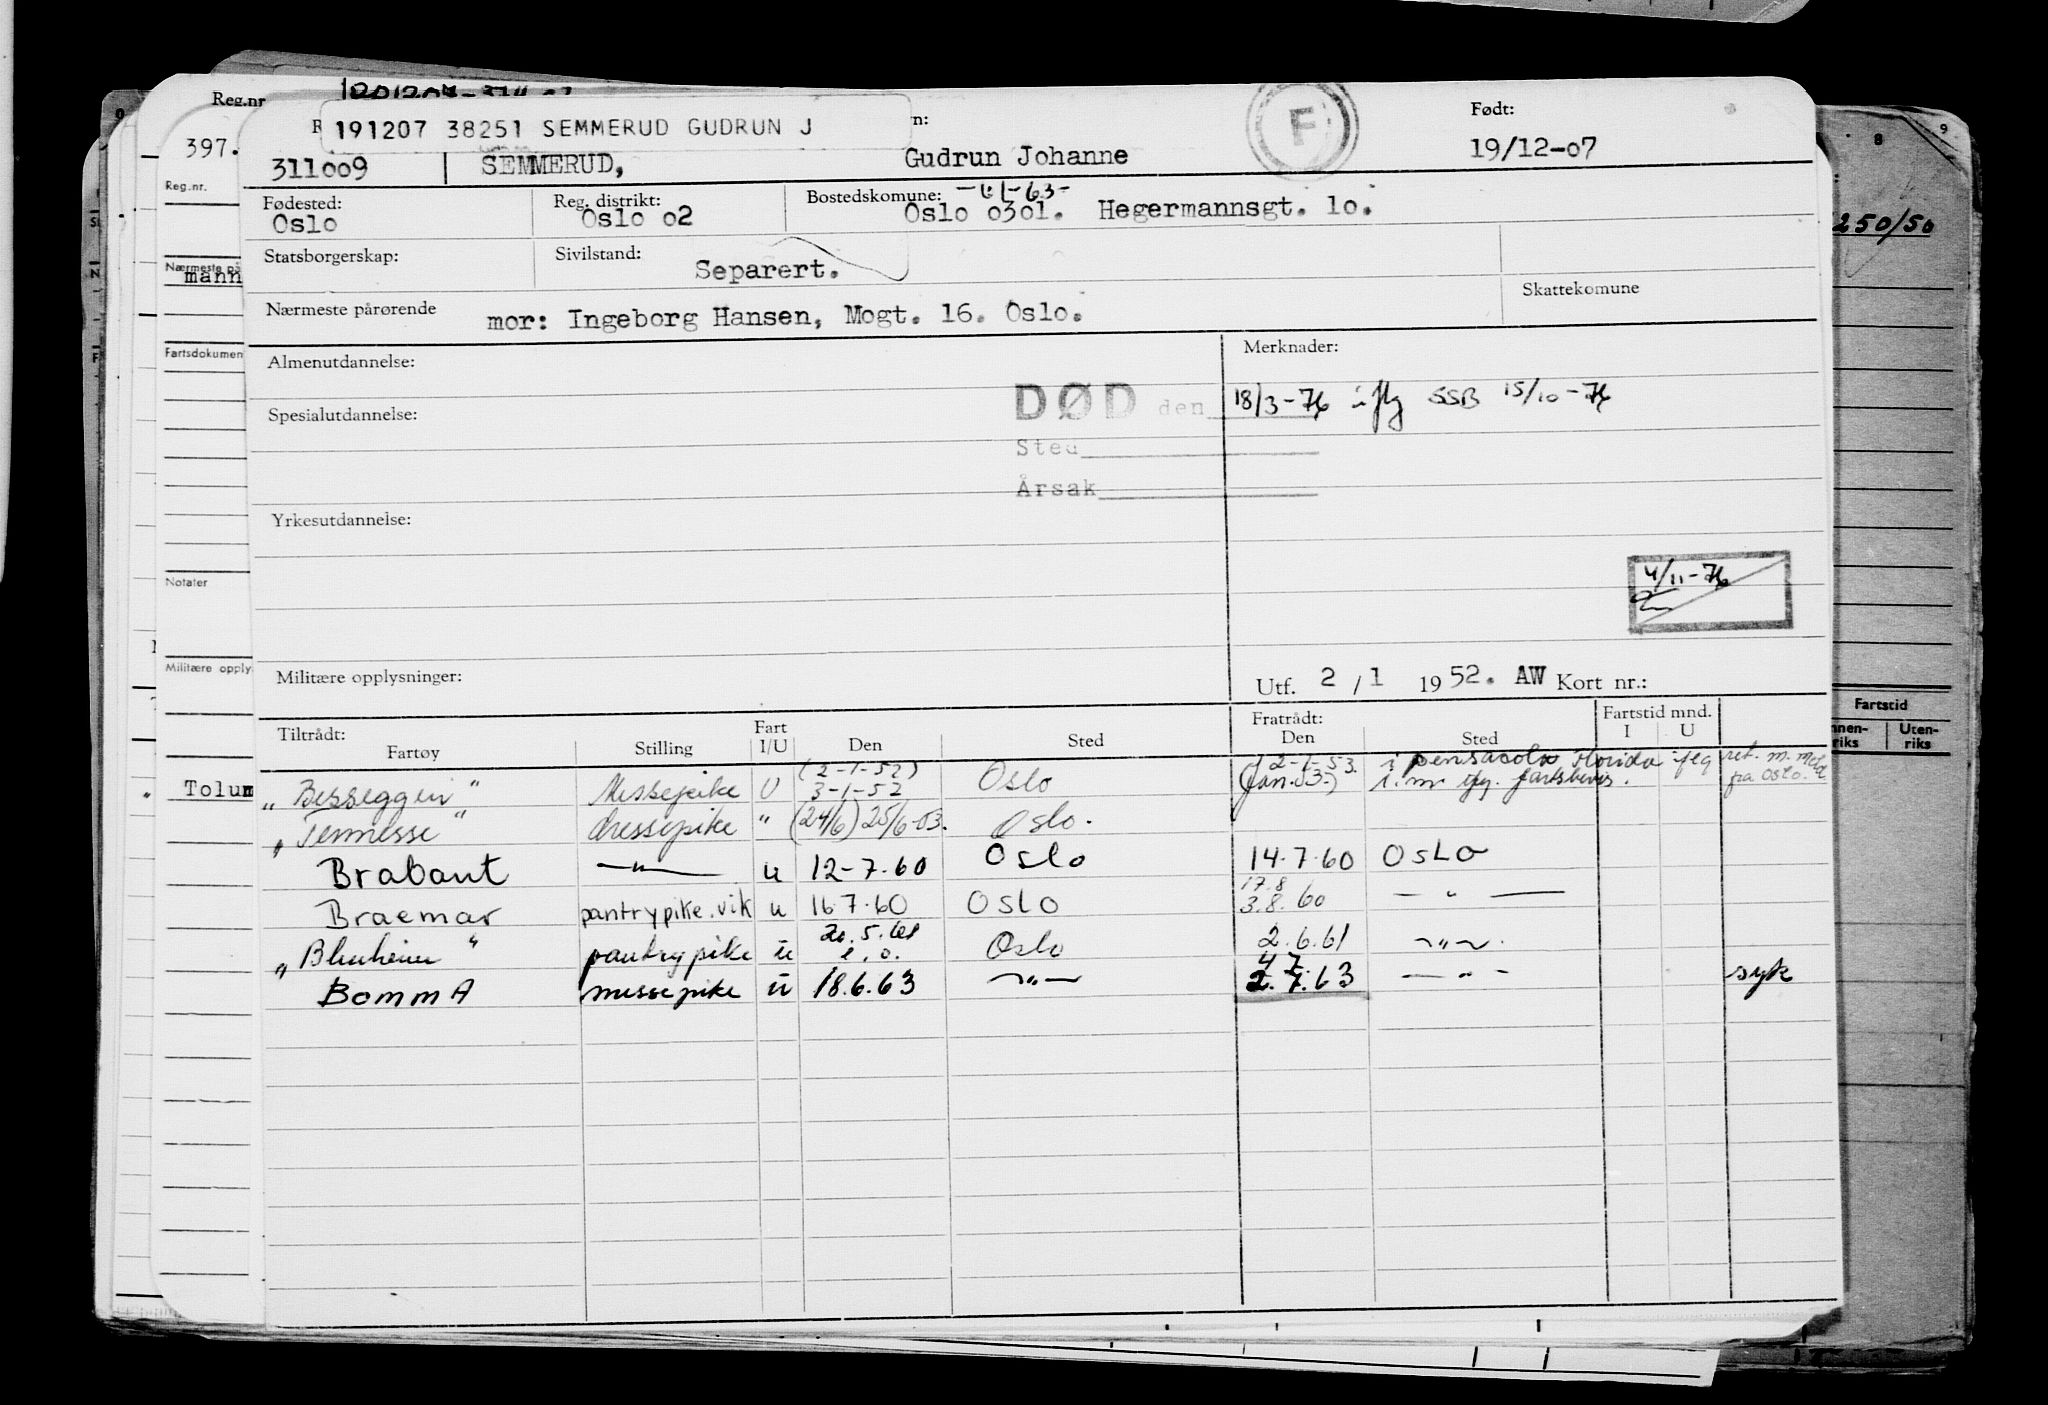 Reg.nr
191207 38251 SEMMERUD GUDRUN J
n:
F
Født:
397.
311009 SEMMERUD, Gudrun Johanne 19/12-07
Reg.nr.
Fødested: Reg. distrikt: Bostedskomune:
Oslo Oslo 02 Oslo 0301. Hegermannsgt. 10.
250/50
Statsborgerskap: Sivilstand: Separert.
mann
Skattekomune
Nærmeste pårørende mor: Ingeborg Hansen, Mogt. 16. Oslo.
Fartsdokumen
Almenutdannelse: Merknader:
DØD den 18/3-76 iflg SSB 15/10-76
Spesialutdannelse:
Sted
Årsak
Yrkesutdannelse:
Notater
4/11-76
Militære opply
Militære opplysninger: Utf. 2 / 1 1952. AW Kort nr.:
Tiltrådt: Fart Fratrådt: Fartstid mnd.
Fartøy Stilling I/U Den Sted Den Sted I U
Fartstid
Uten-
riks riks
Tolum
(2-1-52) 2-1-53. i pensacola Florida iflg
"Besseggen" Messepike U 3-1-52 Oslo
fra Oslo.
"Tennesse" " (24/6) 25/6-53. Oslo.
Brabant —"— u 12-7-60 Oslo 14.7.60 OsLo
17.8
Braemar pantrypike.vik u 16.7.60 OSlo 3.8.60 — " —
20.5.61
"Blenheim" pantrypike u Oslo 2.6.61 —"—.
4 7
BommA messepike u 18.6.63 —"— 2.7.63 — " — syk